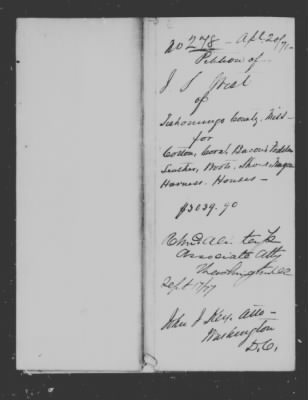 No 278 - Apl. 20/71
Petition of
J. S. West
of
Tishomingo County, Miss -
for
Cotton, Corn, Bacon,
Leather, Boots, Shoes, Wagon
Harness. Houses -
$3039.90
Associate Atty
Washington DC
Sept 7/77
John J Key. Atto -
Washington
D.C.